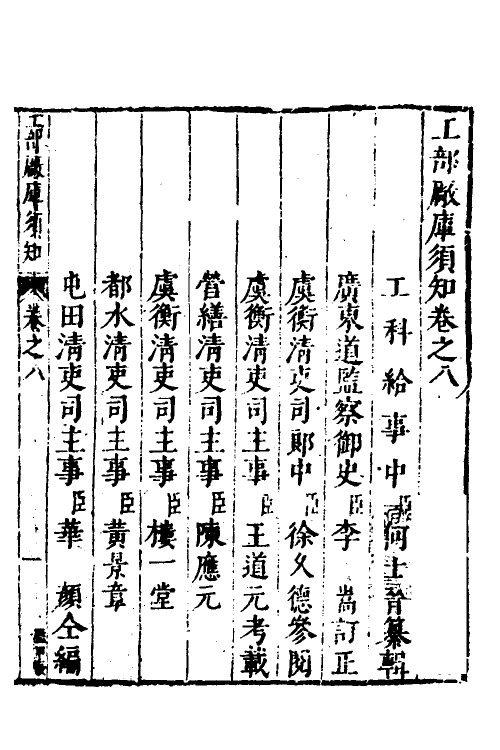 工部廠庫須知卷之八
工科給事中臣何士晉纂輯
廣東道監察御史臣李嵩訂正
虞衡清吏司郎中臣徐久德參閱
虞衡清吏司主事臣王道元考載
營繕清吏司主事臣陳應元
虞衡清吏司主事臣樓一堂
都水清吏司主事臣黃景章
屯田清吏司主事臣華顏仝編
工部廠庫須知 卷之八 一